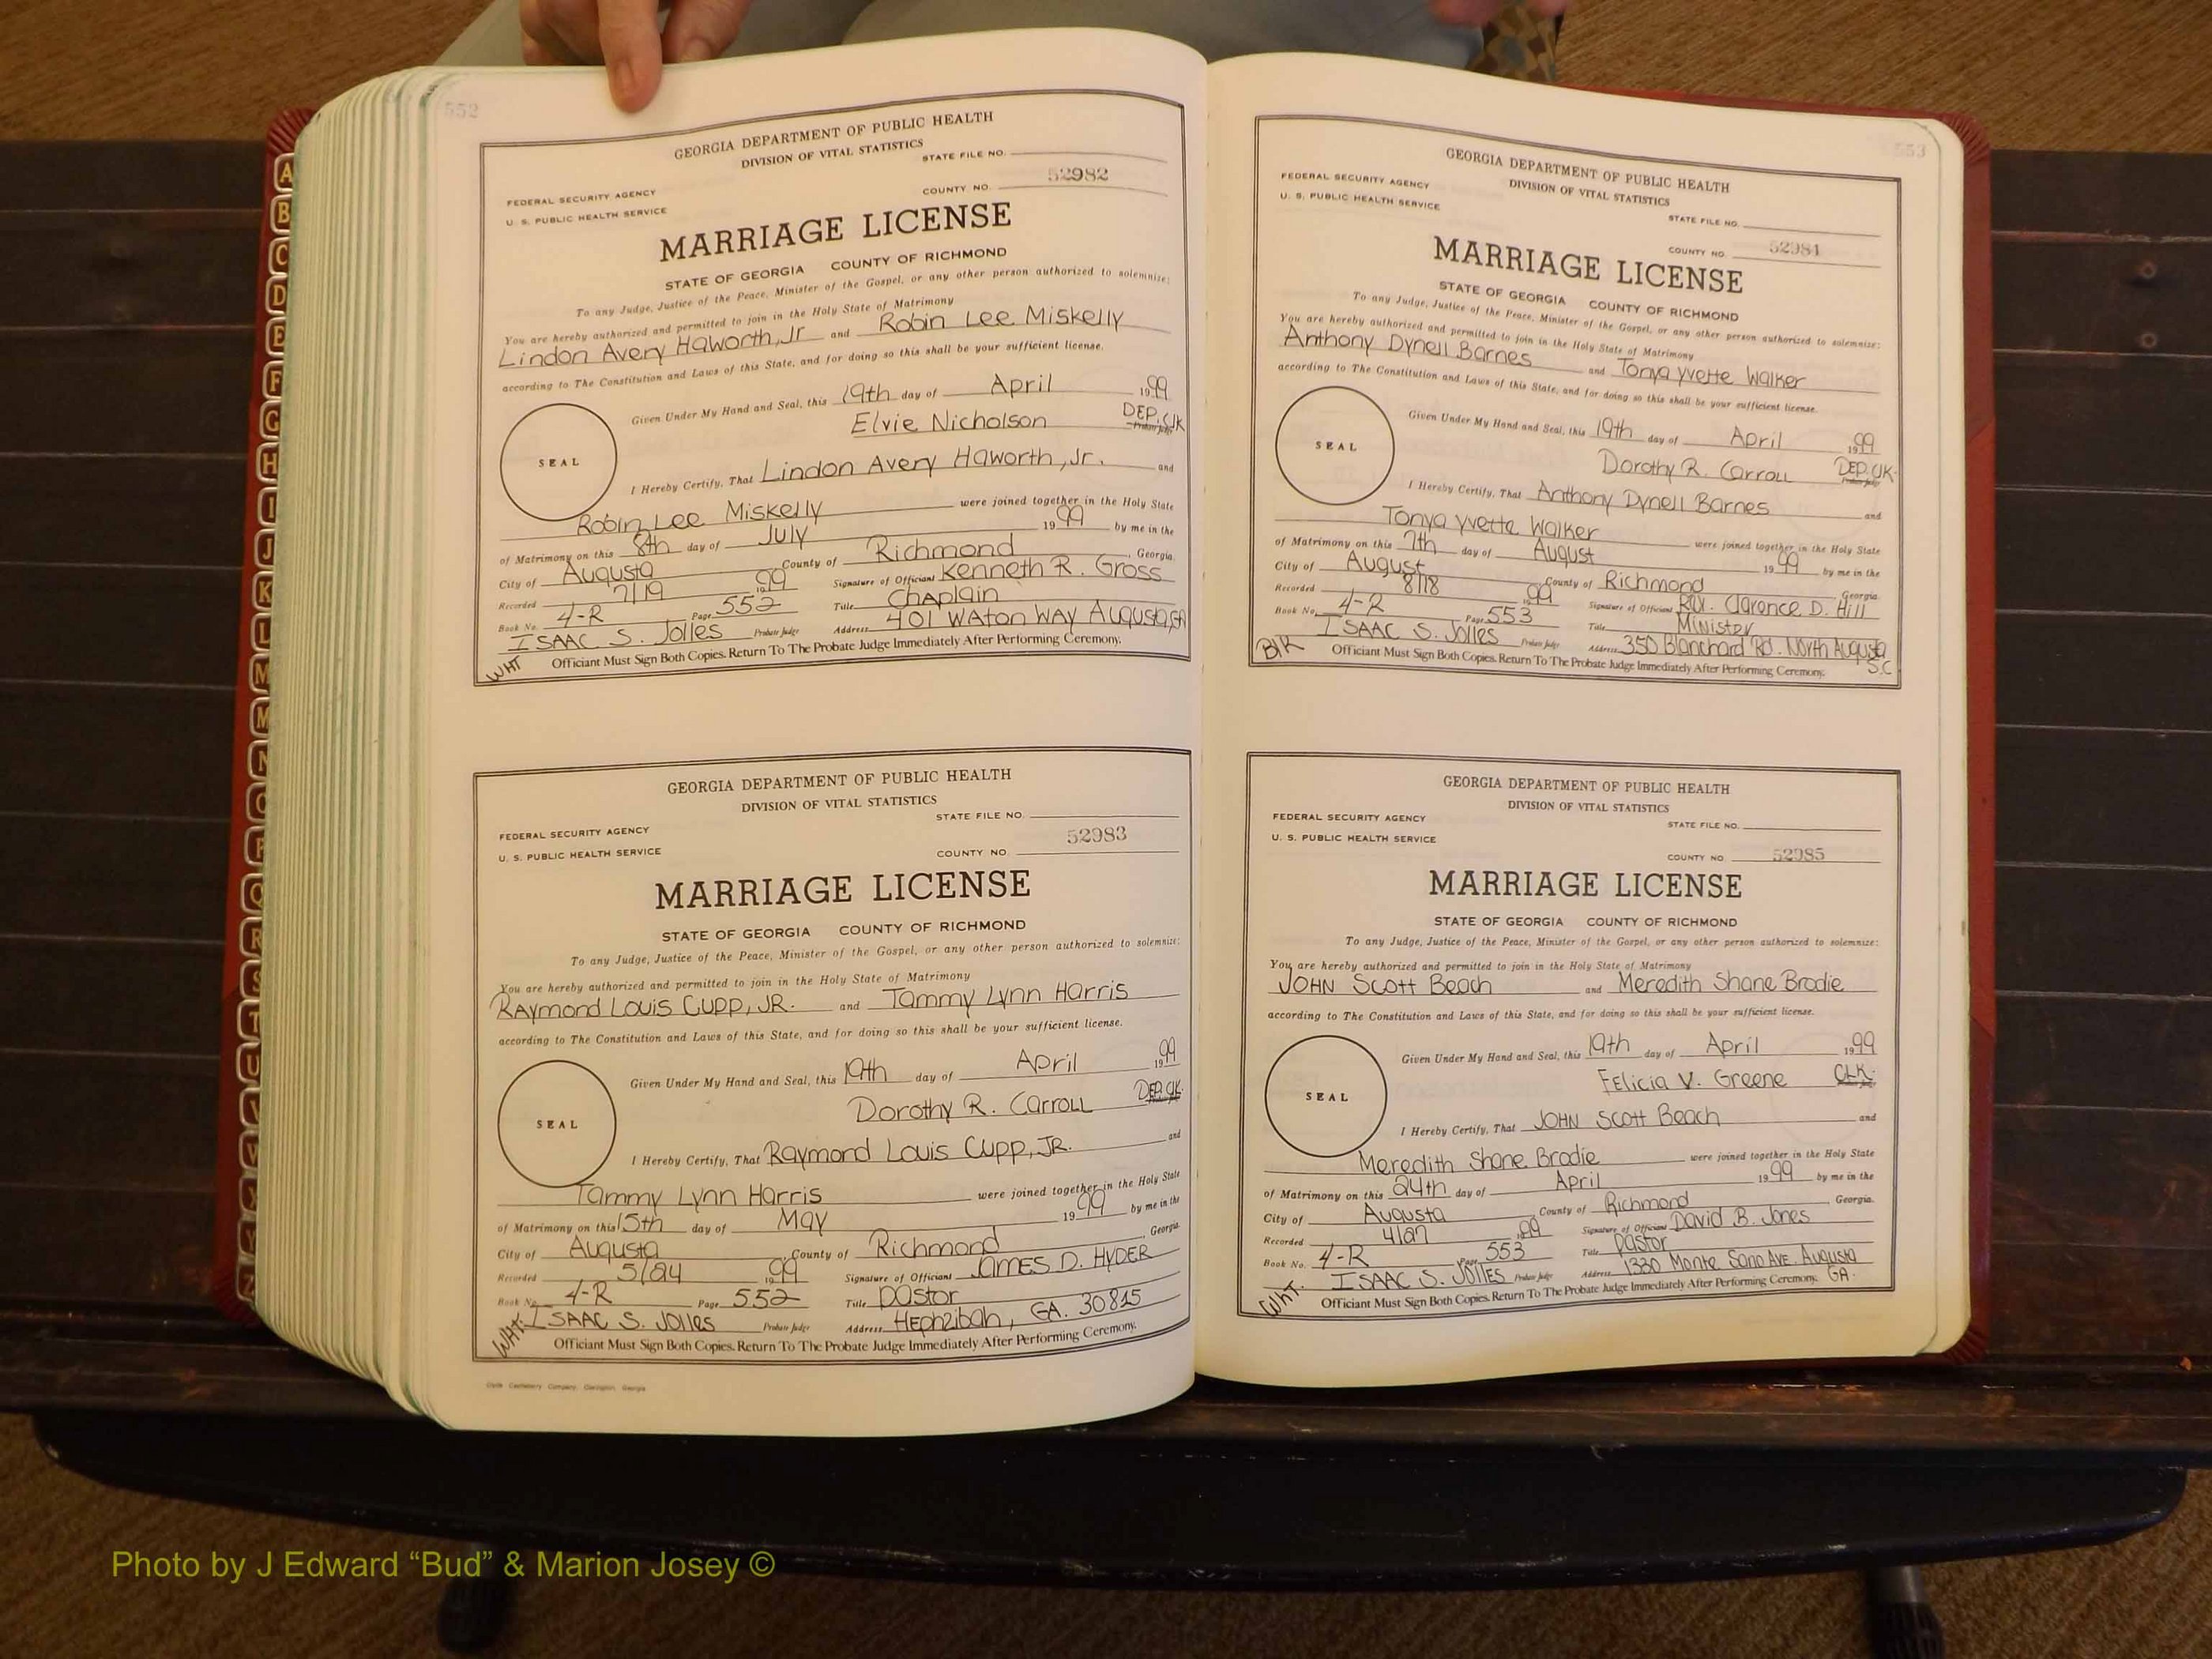 552
GEORGIA DEPARTMENT OF PUBLIC HEALTH
DIVISION OF VITAL STATISTICS
STATE FILE NO.
FEDERAL SECURITY AGENCY
COUNTY NO. 52982
U. S. PUBLIC HEALTH SERVICE
MARRIAGE LICENSE
STATE OF GEORGIA COUNTY OF RICHMOND
To any Judge, Justice of the Peace, Minister of the Gospel, or any other person authorized to solemnize:
You are hereby authorized and permitted to join in the Holy State of Matrimony
Lindon Avery Haworth, Jr and Robin Lee Miskelly
according to The Constitution and Laws of this State, and for doing so this shall be your sufficient license.
Given Under My Hand and Seal, this 19th day of April 1999
Elvie Nicholson DEP. Clk
Probate Judge
SEAL
I Hereby Certify, That Lindon Avery Haworth, Jr. and
Robin Lee Miskelly were joined together in the Holy State
of Matrimony on this 8th day of July 1999 by me in the
City of Augusta County of Richmond, Georgia.
Recorded 7/19 1999 Signature of Officiant Kenneth R. Gross
Book No. 4-R Page 552 Title Chaplain
ISAAC S. Jolles Probate Judge Address 401 WAton Way Augusta, GA
WHT Officiant Must Sign Both Copies. Return To The Probate Judge Immediately After Performing Ceremony.
GEORGIA DEPARTMENT OF PUBLIC HEALTH
DIVISION OF VITAL STATISTICS
STATE FILE NO.
FEDERAL SECURITY AGENCY
52983
U. S. PUBLIC HEALTH SERVICE COUNTY NO.
MARRIAGE LICENSE
STATE OF GEORGIA COUNTY OF RICHMOND
To any Judge, Justice of the Peace, Minister of the Gospel, or any other person authorized to solemnize:
You are hereby authorized and permitted to join in the Holy State of Matrimony
RAymond Louis Cupp, JR. and Tammy Lynn Harris
according to The Constitution and Laws of this State, and for doing so this shall be your sufficient license.
Given Under My Hand and Seal, this 19th day of April 1999
Dorothy R. Carroll DEP. Clk.
SEAL
I Hereby Certify, That Raymond Louis Cupp, JR. and
Tammy Lynn Harris were joined together in the Holy State
of Matrimony on this 15th day of May 1999 by me in the
City of Augusta, County of Richmond, Georgia.
Recorded 5/24 1999 Signature of Officiant JAMES D. HYDER
Book No. 4-R Page 552 Title Pastor
ISAAC S. Jolles Probate Judge Address Hephzibah, GA. 30815
WHT. Officiant Must Sign Both Copies. Return To The Probate Judge Immediately After Performing Ceremony.
553
GEORGIA DEPARTMENT OF PUBLIC HEALTH
DIVISION OF VITAL STATISTICS
FEDERAL SECURITY AGENCY
U. S. PUBLIC HEALTH SERVICE
STATE FILE NO.
COUNTY NO. 52984
MARRIAGE LICENSE
STATE OF GEORGIA COUNTY OF RICHMOND
To any Judge, Justice of the Peace, Minister of the Gospel, or any other person authorized to solemnize:
You are hereby authorized and permitted to join in the Holy State of Matrimony
Anthony Dynell Barnes and Tonya Yvette Walker
according to The Constitution and Laws of this State, and for doing so this shall be your sufficient license.
Given Under My Hand and Seal, this 19th day of April 1999
Dorothy R. Carroll DEP. Clk.
Probate Judge
SEAL
I Hereby Certify, That Anthony Dynell Barnes and
Tonya Yvette Walker were joined together in the Holy State
of Matrimony on this 7th day of August 1999 by me in the
City of August County of Richmond Georgia.
Recorded 8/18 1999 Signature of Officiant Rev. Clarence D. Hill
Book No. 4-R Page 553 Title Minister
ISAAC S. Jolles Probate Judge Address 350 Blanchard Rd. North Augusta S.C
Blk Officiant Must Sign Both Copies. Return To The Probate Judge Immediately After Performing Ceremony.
GEORGIA DEPARTMENT OF PUBLIC HEALTH
DIVISION OF VITAL STATISTICS
FEDERAL SECURITY AGENCY STATE FILE NO.
U. S. PUBLIC HEALTH SERVICE
COUNTY NO. 52985
MARRIAGE LICENSE
STATE OF GEORGIA COUNTY OF RICHMOND
To any Judge, Justice of the Peace, Minister of the Gospel, or any other person authorized to solemnize:
You are hereby authorized and permitted to join in the Holy State of Matrimony
JOHN Scott Beach and Meredith Shane Brodie
according to The Constitution and Laws of this State, and for doing so this shall be your sufficient license.
Given Under My Hand and Seal, this 19th day of April 1999
Felicia V. Greene CLK.
SEAL
I Hereby Certify, That JOHN Scott Beach and
Meredith Shane Brodie were joined together in the Holy State
of Matrimony on this 24th day of April 1999 by me in the
City of Augusta County of Richmond, Georgia.
Recorded 4/27 1999 Signature of Officiant David B. Jones
Book No. 4-R Page 553 Title Pastor
ISAAC S. Jolles Probate Judge Address 1330 Monte Sano AVE. Augusta GA.
WHT. Officiant Must Sign Both Copies. Return To The Probate Judge Immediately After Performing Ceremony.
A
B
C
D
E
F
G
H
I
J
K
L
M
M
N
O
P
Q
R
S
T
U
V
W
X
Y
Z
Photo by J Edward “Bud” & Marion Josey ©